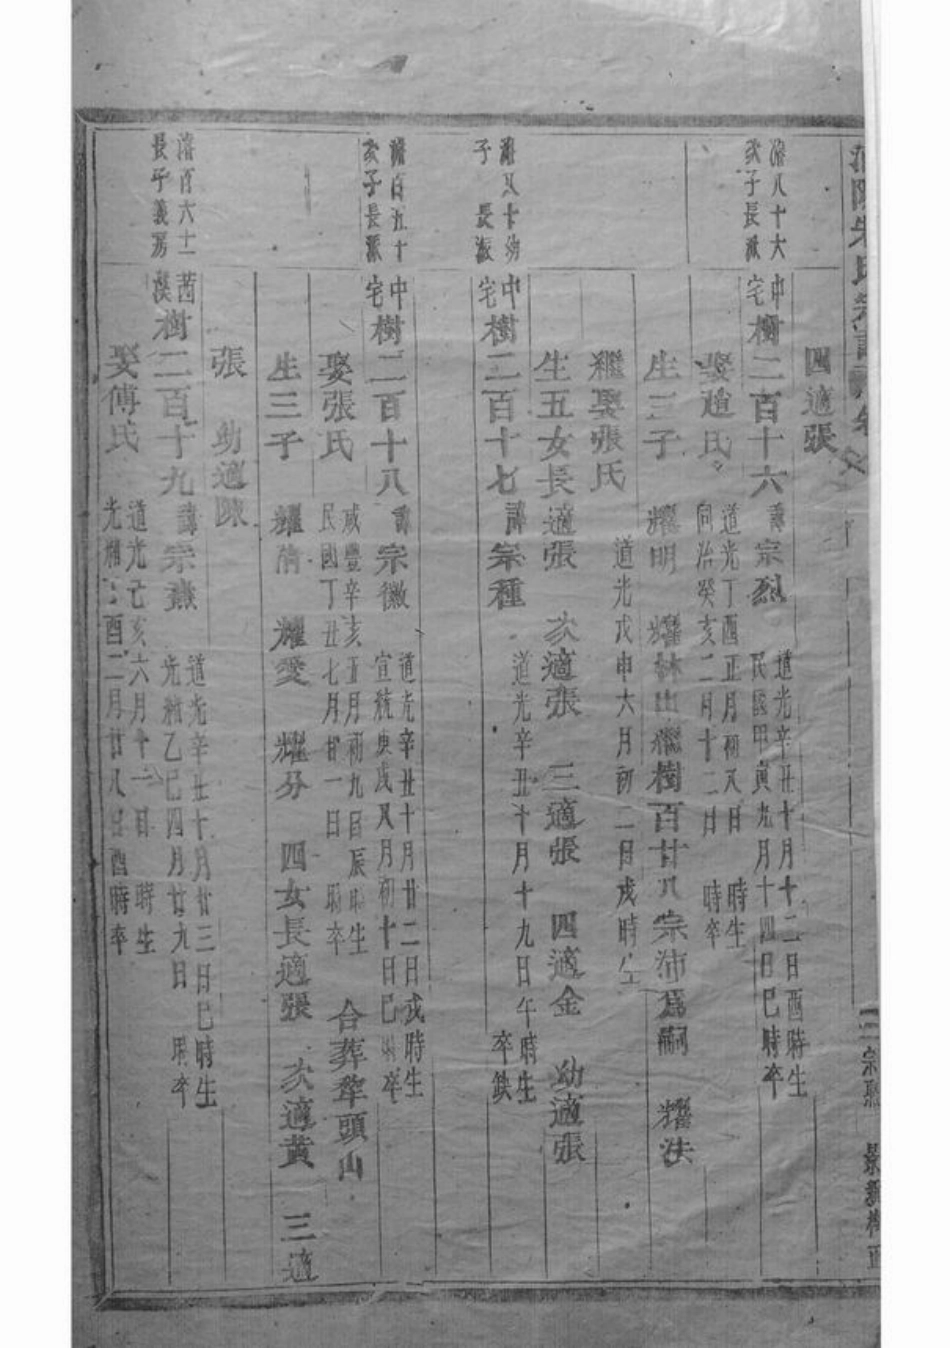 四適張
八十六
次子長派
中宅樹二百十六諱宗烈
道光辛丑十月十二日酉時生
民國甲寅九月十四日巳時卒
娶趙氏
道光丁酉正月初八日 時生
同治癸亥二月十二日 時卒
生三子 耀明 耀林出繼樹百廿八宗沛爲嗣 耀法
繼娶張氏
道光戊申六月初二日戌時生
生五女長適張 次適張 三適張 四適金 幼適張
八十幼
子 長派
中宅樹二百十七諱宗種
道光辛丑十月十九日午時生
卒缺
百五十
次子長派
中宅樹二百十八諱宗徽
道光辛丑十月廿二日戌時生
宣統庚戌又月初十日巳時卒
娶張氏
咸豐辛亥五月初九日辰時生
民國丁丑七月廿一日 時卒
合葬犂頭山
生三子 耀 耀愛 耀分 四女長適張 次適黃 三適
張 幼適陳
百六十一
長子義房
樹二百十九諱宗
道光辛丑十月廿三日巳時生
光緒乙巳四月廿九日 時卒
娶傅氏
道光己亥六月十一日 時生
光緒 酉二月廿八日酉時卒